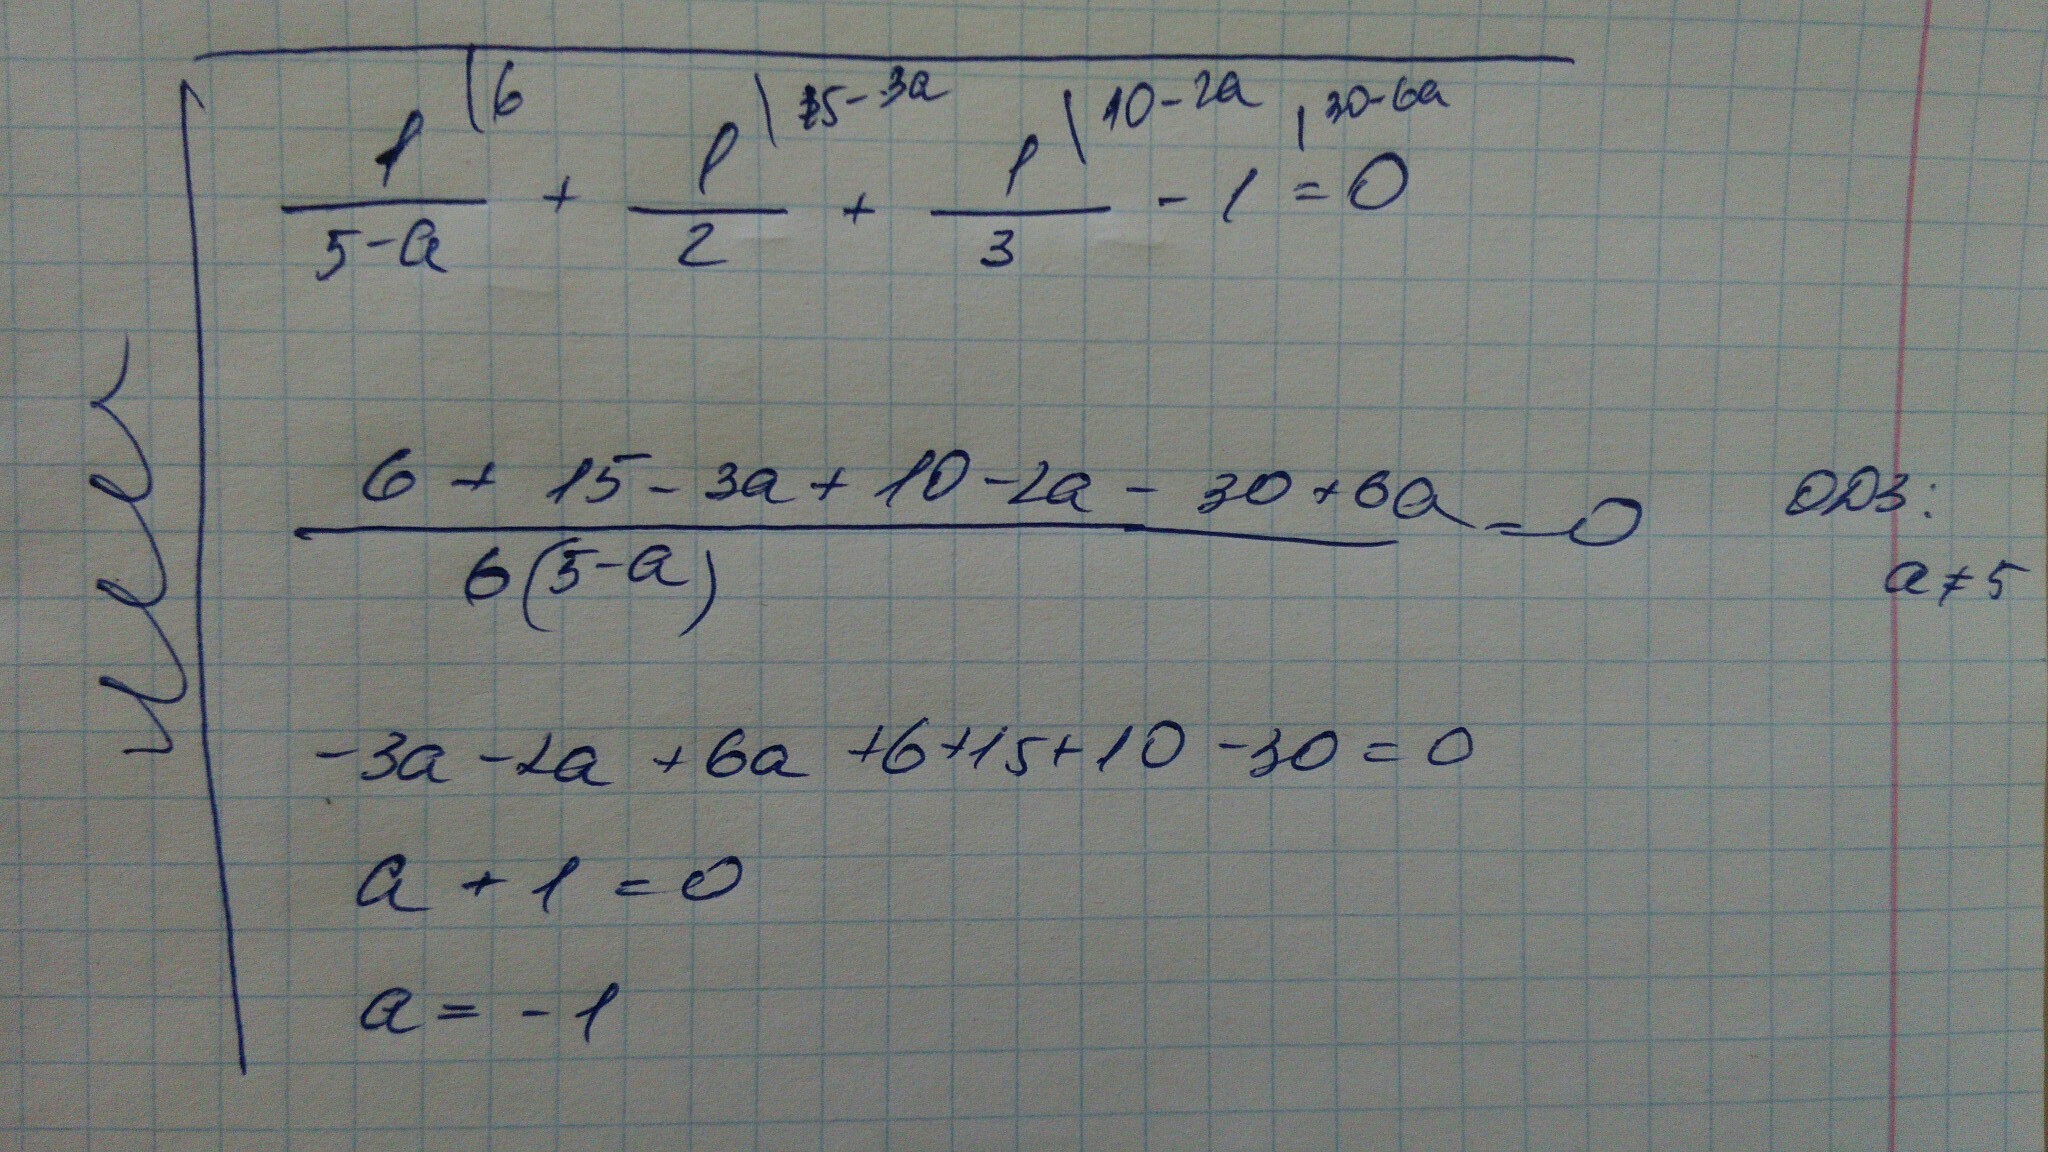 1/(5-a) \6 + 1/2 \15-3a + 1/3 \10-2a - 1 \30-6a = 0
(6 + 15 - 3a + 10 - 2a - 30 + 6a)/(6(5-a)) = 0
ОДЗ:
a ≠ 5
-3a - 2a + 6a + 6 + 15 + 10 - 30 = 0
a + 1 = 0
a = -1